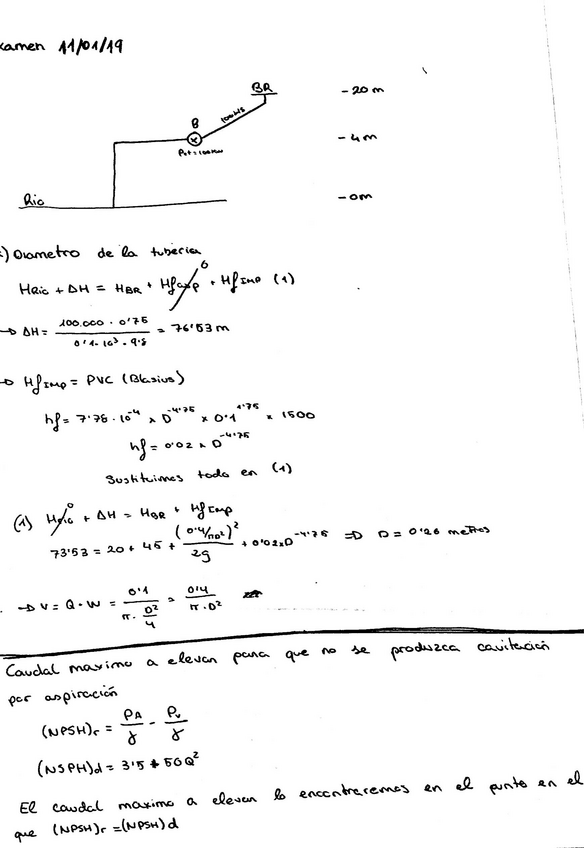 xamen 11/01/19
BR
- 20 m
100 l/s
B
- 4 m
Pot = 100 KW
Rio
- 0m
) Diametro de la tuberia
HRio + ΔH = HBR + Hfasp + HfImp (1)
0
→ ΔH = 100.000 · 0'75 / 0'1 · 10³ · 9.8 = 76'53 m
→ HfImp = PVC (Blasius)
hf = 7'78 · 10⁻⁴ x D^-4'75 x 0'1^1'75 x 1500
hf = 0'02 x D^-4'75
Sustituimos todo en (1)
(1) HRio + ΔH = HBR + HfImp
0
73'53 = 20 + 45 + (0'4/πD²)² / 2g + 0'02xD^-4'75 => D = 0'26 metros
→ V = Q · W = 0'1 / π · D²/4 = 0'4 / π · D²
Caudal maximo a elevar para que no se produzca cavitación
por aspiración
(NPSH)r = PA/γ - Pv/γ
(NSPH)d = 3'5 + 50Q²
El caudal maximo a elevar lo encontraremos en el punto en el
que (NPSH)r = (NPSH)d